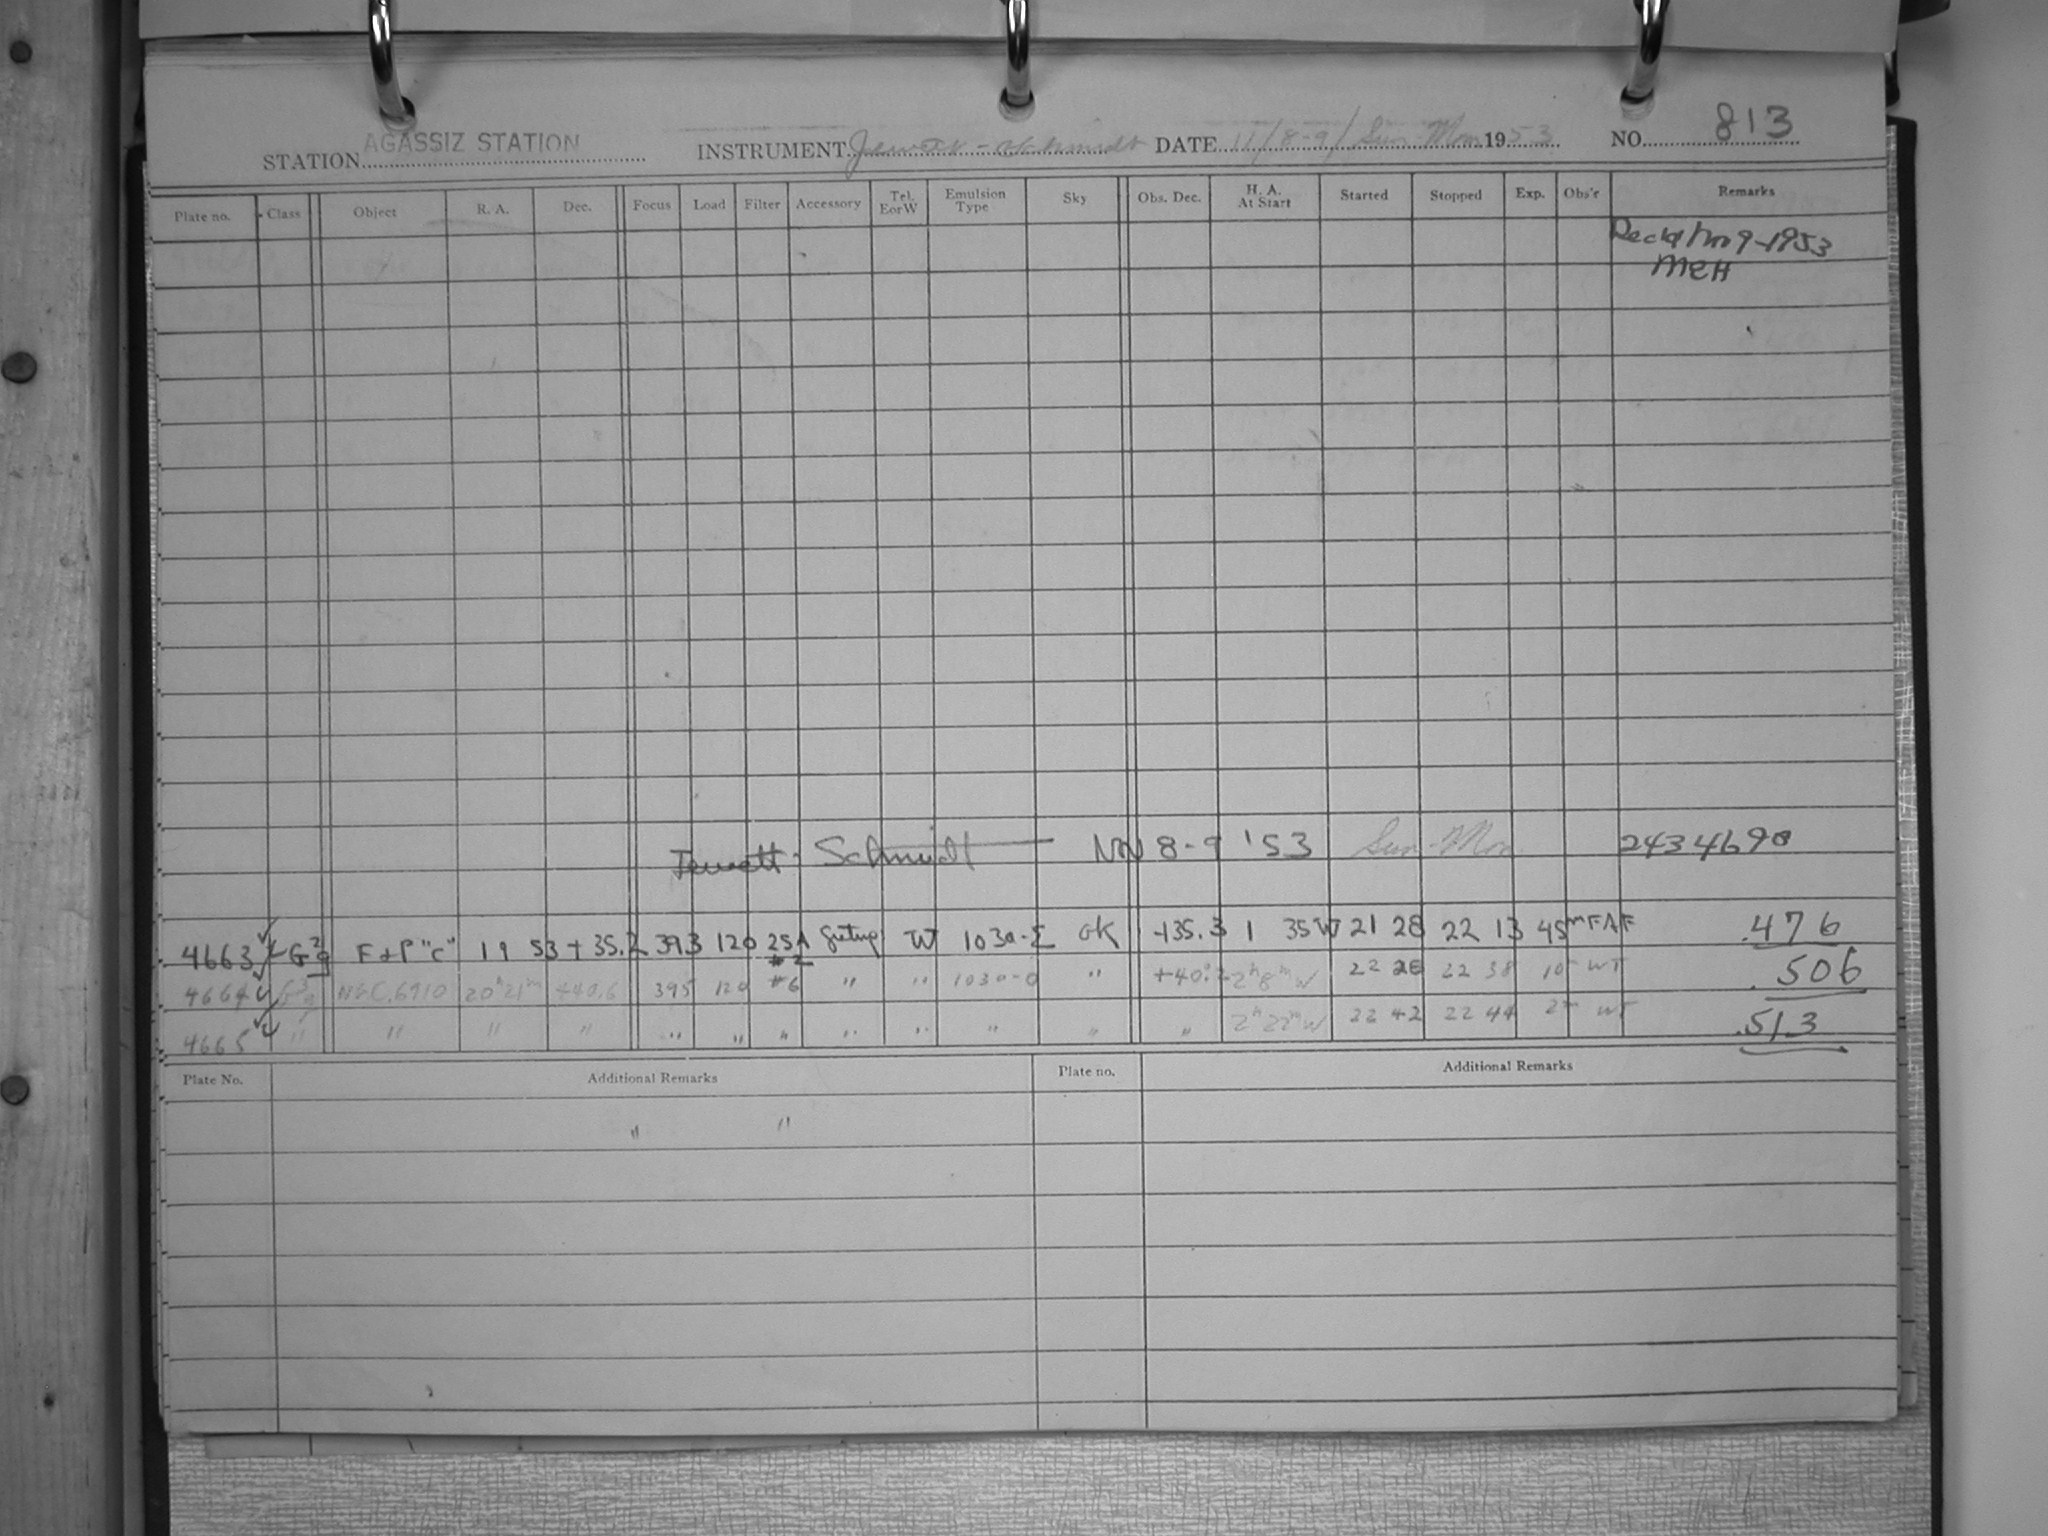 STATION AGASSIZ STATION INSTRUMENT Jewett-Schmidt DATE 11/8-9/ Sun-Mon 1953 NO. 813
Plate no. Class Object R. A. Dec. Focus Load Filter Accessory Tel. E or W Emulsion Type Sky Obs. Dec. H. A. At Start Started Stopped Exp. Obs'r Remarks
Rec'd Nov 9-1953
MEH
Jewett-Schmidt Nov 8-9 '53 Sun-Mon 2434690
4663 ✓ G 2 F+P "c" 19 53 +35.2 393 120 25A #2 W 1030-E OK +35.3 1 35 W 21 28 22 13 45m FAF .476
4664 ✓ NGC.6910 20h21m +40.6 395 120 #6 " " 1030-O " +40.2 2h8m W 22 28 22 38 10 WT .506
4665 ✓ " " " " " " " " " " " " 2h22m W 22 42 22 44 2m WT .513
Plate No. Additional Remarks Plate no. Additional Remarks
" "